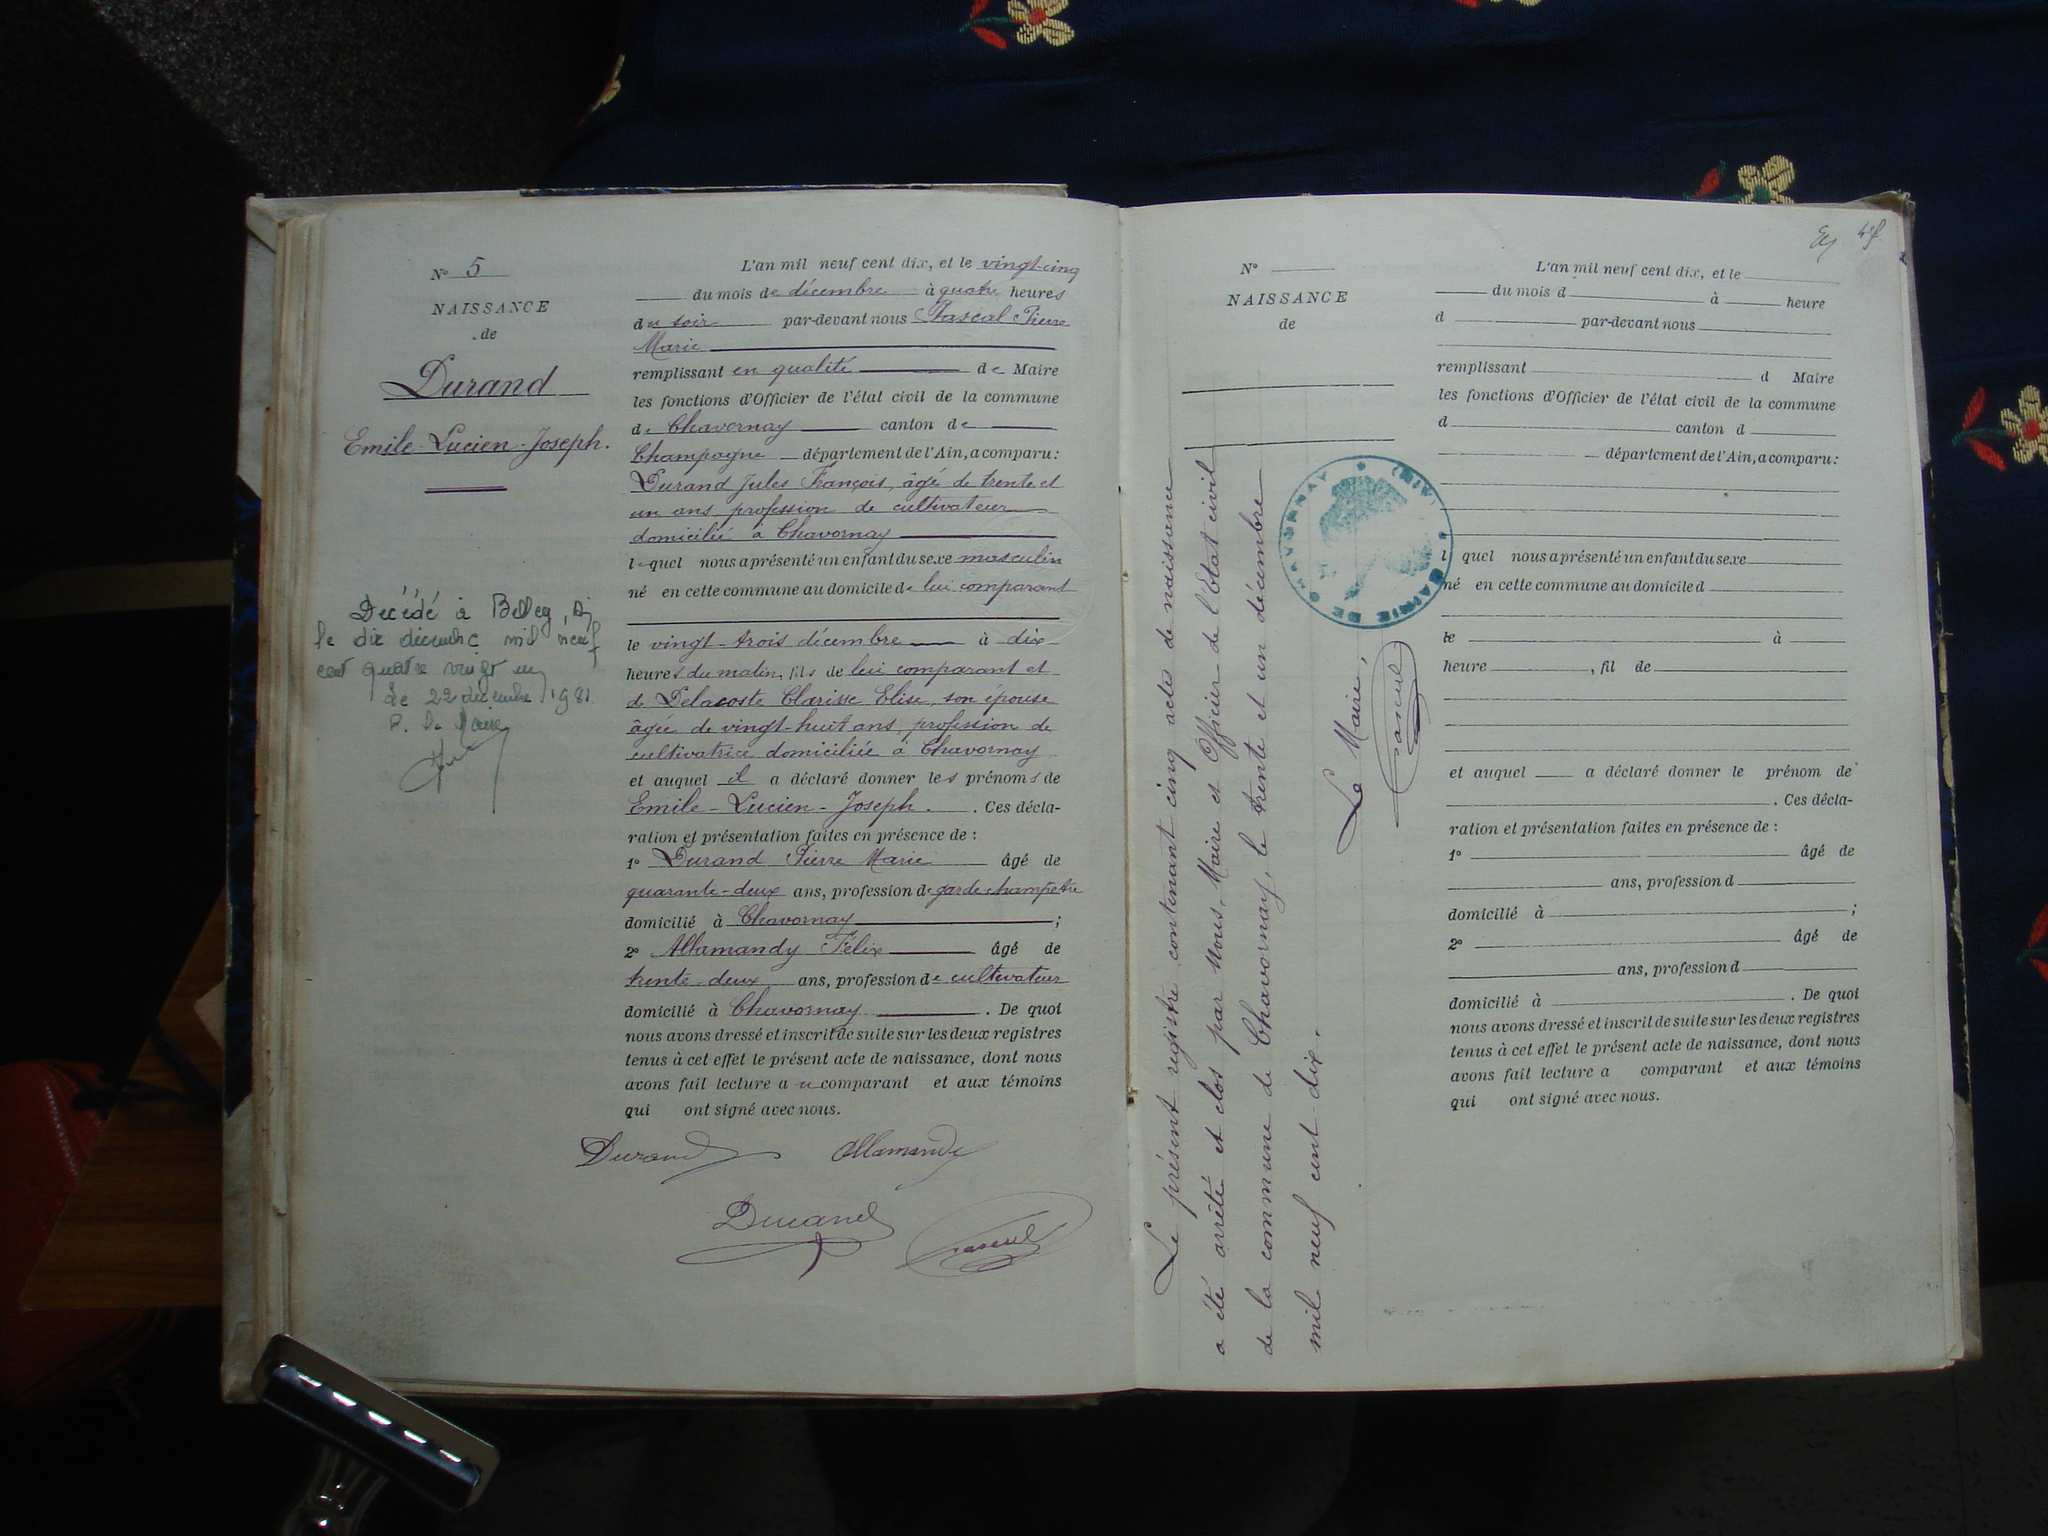 N° 5
NAISSANCE
de
Durand
Emile-Lucien-Joseph.
Décédé à Belley, Ain
le dix décembre mil neuf
cent quatre vingt un
Le 22 décembre 1981.
P. Le Maire
L'an mil neuf cent dix, et le vingt-cinq
du mois de décembre à quatre heures
du soir par-devant nous Pascal Pierre
Marie
remplissant en qualité de Maire
les fonctions d'Officier de l'état civil de la commune
de Chavornay canton de
Champagne département de l'Ain, a comparu:
Durand Jules François, âgé de trente et
un ans, profession de cultivateur
domicilié à Chavornay
lequel nous a présenté un enfant du sexe masculin
né en cette commune au domicile de lui comparant
le vingt-trois décembre à dix
heures du matin, fils de lui comparant et
de Delacoste Clarisse Elise, son épouse
âgée de vingt-huit ans, profession de
cultivatrice domiciliée à Chavornay
et auquel il a déclaré donner les prénoms de
Emile-Lucien-Joseph. . Ces décla-
ration et présentation faites en présence de :
1° Durand Pierre Marie âgé de
quarante-deux ans, profession de garde champêtre
domicilié à Chavornay ;
2° Allamandy Félix âgé de
trente-deux ans, profession de cultivateur
domicilié à Chavornay . De quoi
nous avons dressé et inscrit de suite sur les deux registres
tenus à cet effet le présent acte de naissance, dont nous
avons fait lecture au comparant et aux témoins
qui ont signé avec nous.
Durand Allamandy
Durand Pascal
N°
NAISSANCE
de
Le présent registre contenant cinq acte de naissance
a été arrêté et clos par Nous, Maire et Officier de l'Etat civil
de la commune de Chavornay, le trente et un décembre
mil neuf cent-dix.
Le Maire,
Pascal
MAIRIE DE CHAVORNAY (AIN)
L'an mil neuf cent dix, et le
du mois d à heure
d par-devant nous
remplissant d Maire
les fonctions d'Officier de l'état civil de la commune
d canton d
département de l'Ain, a comparu:
l quel nous a présenté un enfant du sexe
né en cette commune au domicile d
le à
heure , fil de
et auquel a déclaré donner le prénom de
. Ces décla-
ration et présentation faites en présence de :
1° âgé de
ans, profession d
domicilié à ;
2° âgé de
ans, profession d
domicilié à . De quoi
nous avons dressé et inscrit de suite sur les deux registres
tenus à cet effet le présent acte de naissance, dont nous
avons fait lecture a comparant et aux témoins
qui ont signé avec nous.